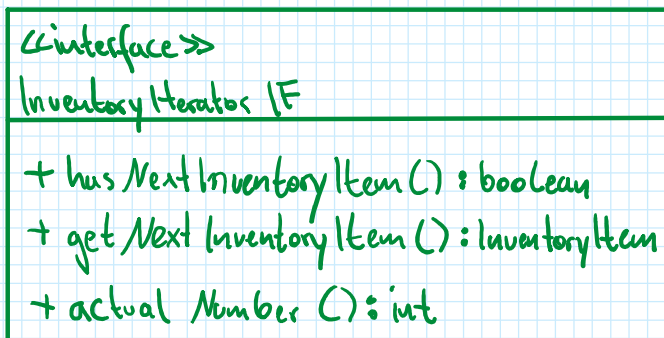 <<interface>>
InventoryIterator IF
+ hasNextInventoryItem() : boolean
+ getNextInventoryItem() : InventoryItem
+ actualNumber() : int